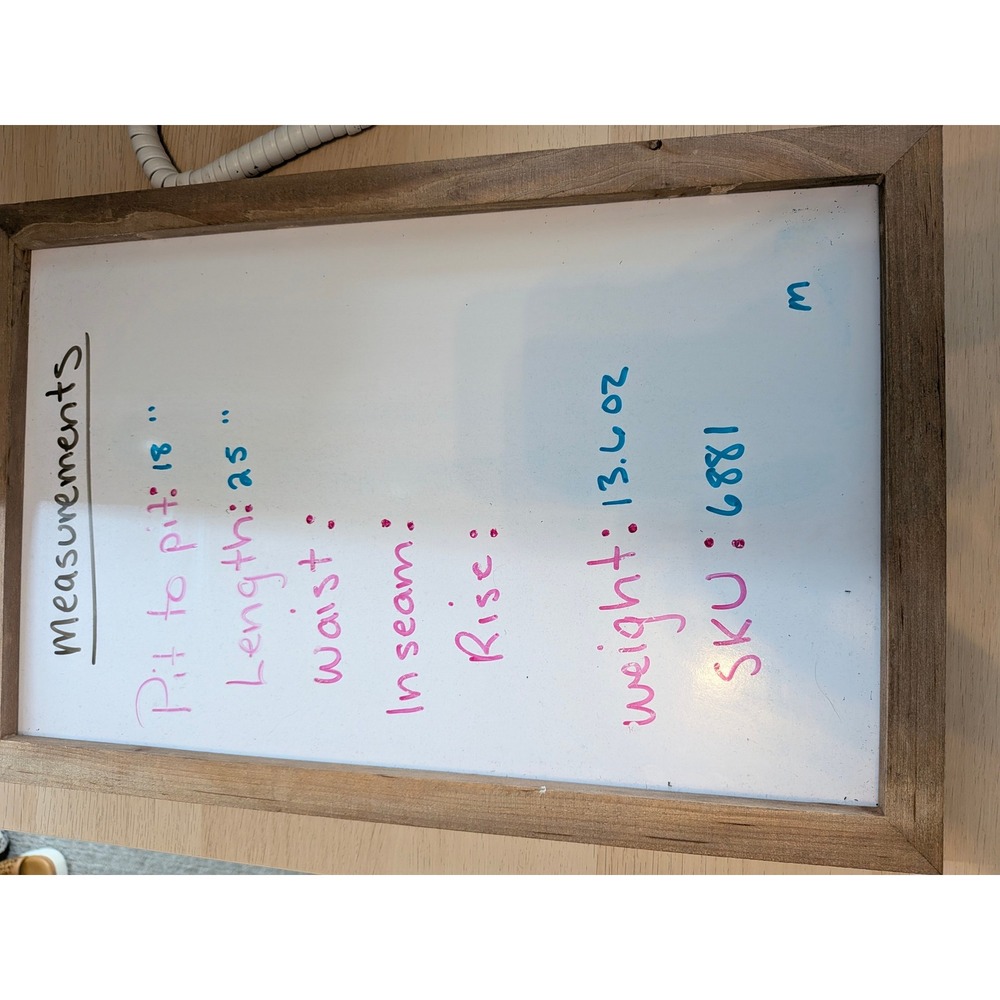 Measurements
Pit to pit: 18"
Length: 25"
Waist:
Inseam:
Rise:
Weight: 13.6oz
SKU: 6881
m